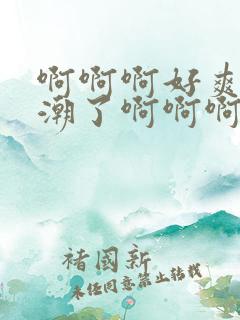 啊啊啊好爽
潮了啊啊啊
褚国新
未经同意禁止转载